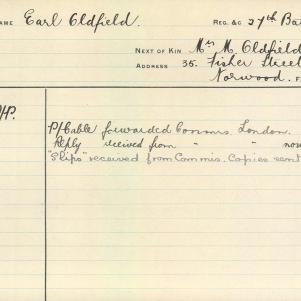 NAME Earl Oldfield. REG. &C 27th Bat
NEXT OF KIN Mrs M. Oldfield
ADDRESS 35. Fisher Street
Norwood.
P/Cable forwarded Commis. London.
Reply received from " "
"Slips" received from Commis. Copies sent